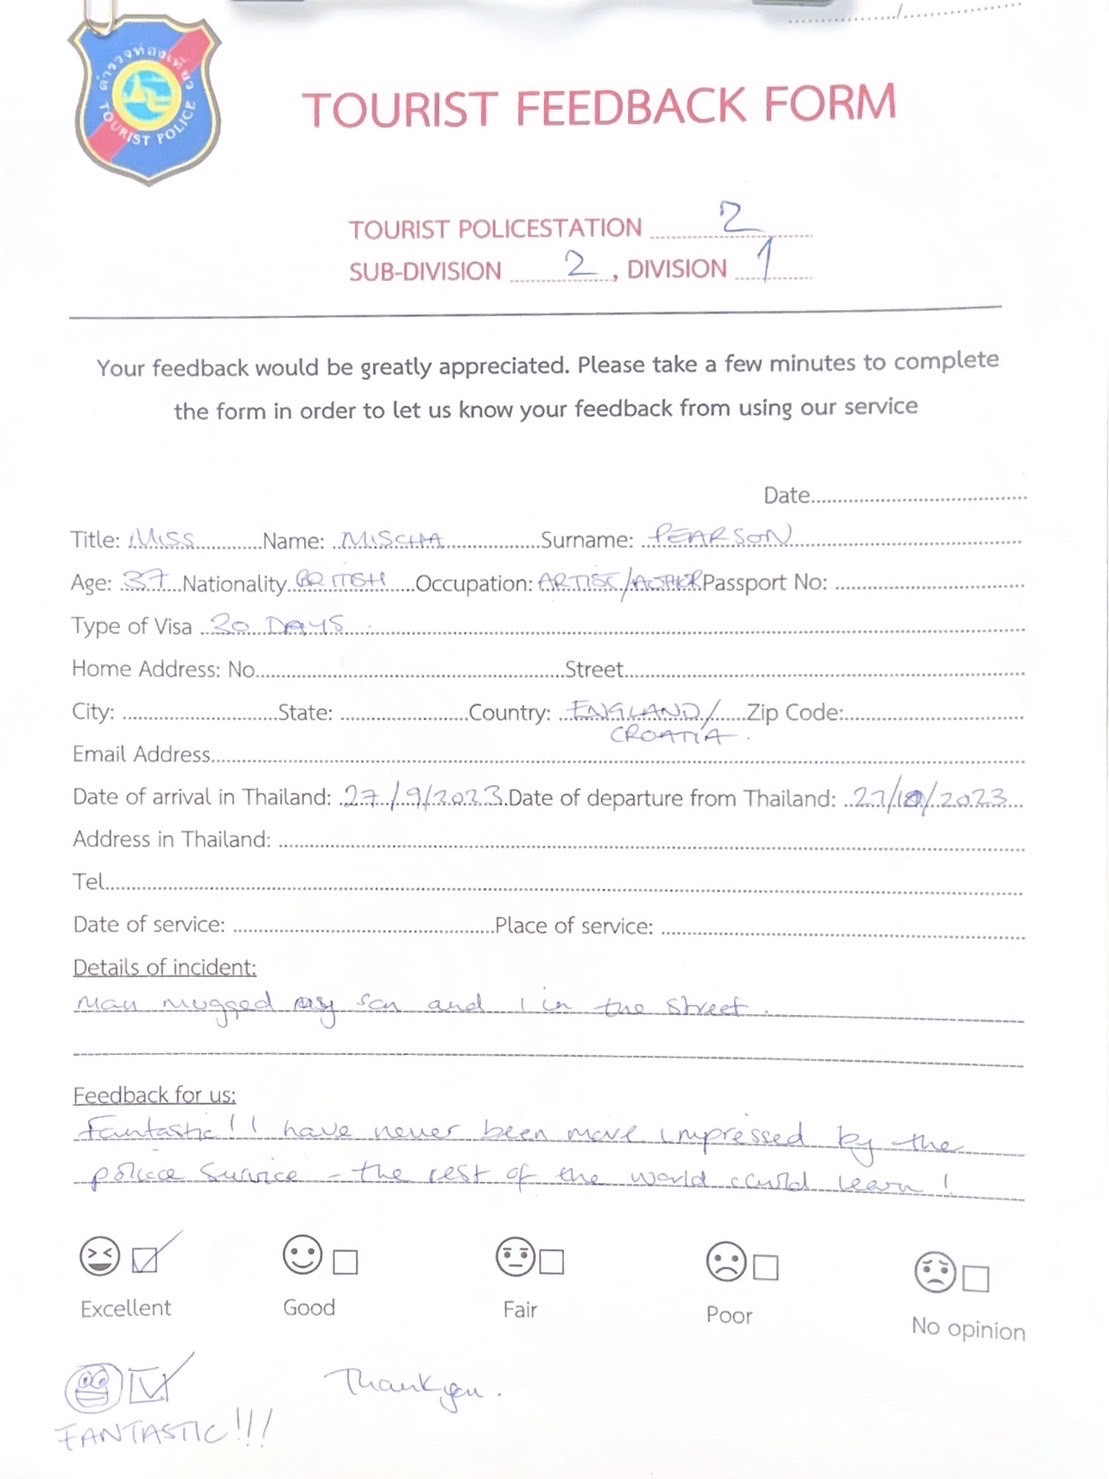 ตำรวจท่องเที่ยว
TOURIST POLICE
TOURIST FEEDBACK FORM
TOURIST POLICESTATION 2
SUB-DIVISION 2, DIVISION 1
Your feedback would be greatly appreciated. Please take a few minutes to complete
the form in order to let us know your feedback from using our service
Date
Title: MISS Name: MISCHA Surname: PEARSON
Age: 37 Nationality BRITISH Occupation: ARTIST/AUTHOR Passport No:
Type of Visa 30 DAYS
Home Address: No. Street
City: State: Country: ENGLAND/ Zip Code:
CROATIA.
Email Address
Date of arrival in Thailand: 27/9/2023 Date of departure from Thailand: 27/10/2023
Address in Thailand:
Tel
Date of service: Place of service:
Details of incident:
Man mugged my son and I in the street.
Feedback for us:
Fantastic! I have never been more impressed by the
police service - the rest of the world could learn!
Excellent Good Fair Poor No opinion
Thank you.
FANTASTIC!!!